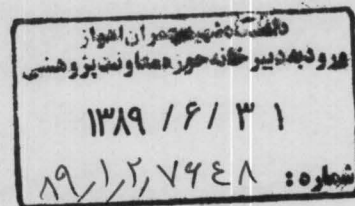 دانشگاه شهید چمران اهواز
ورود به دبیرخانه حوزه معاونت پژوهشی
۱۳۸۹ / ۶ / ۳ ۱
شماره : ۸۹٫۱٫۲٫۷۶۴۸